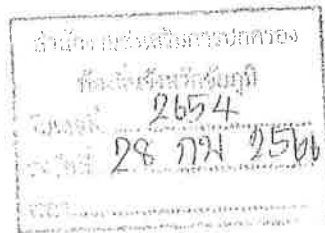 สำนักงานส่งเสริมการปกครอง
ท้องถิ่นจังหวัดชัยภูมิ
2654
วันที่ 28 กพ 2566
เวลา